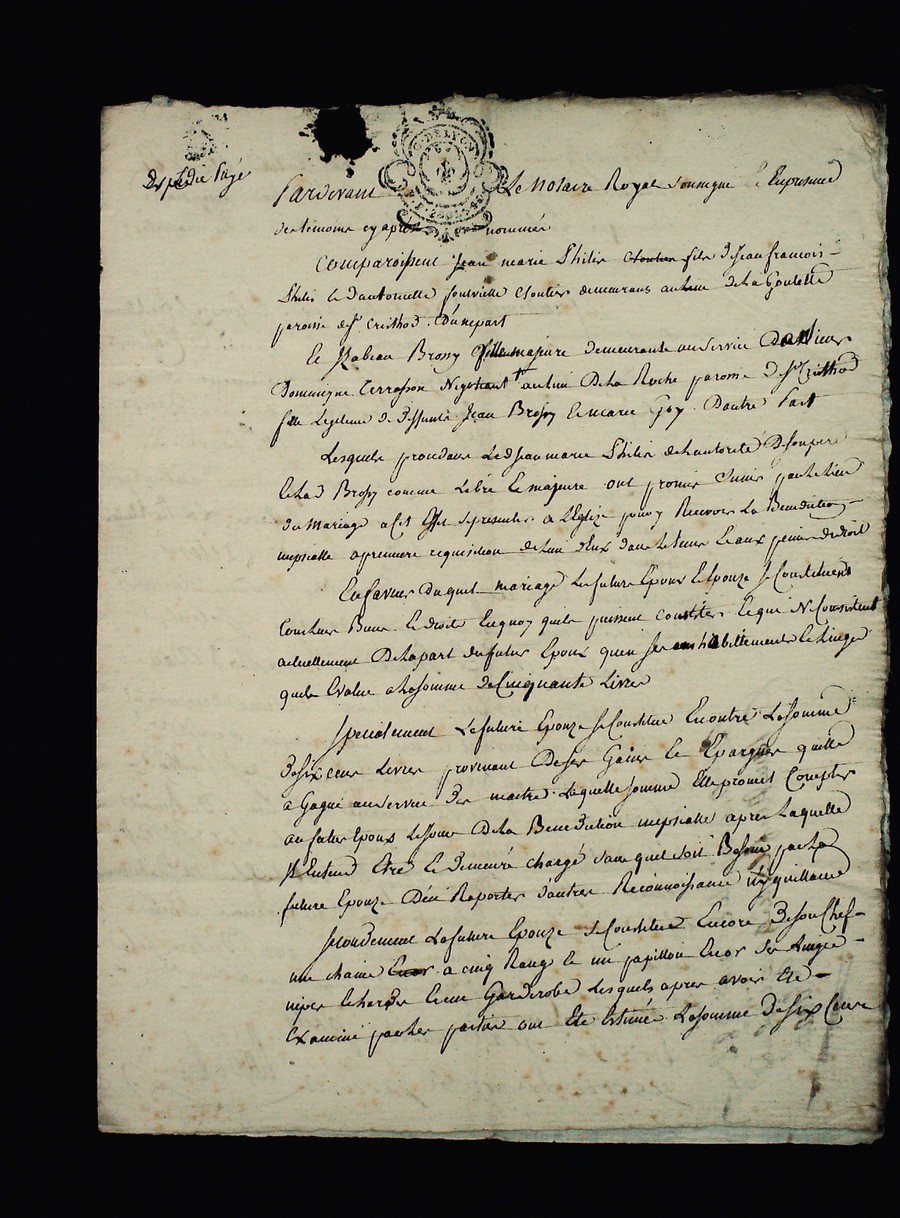 G. DE LYON
Pardevant Le Notaire Royal Soussigne Et En presence
des temoins cy apres nommés
Comparoissent Jean marie Philis Cloutier fils de Jean francois
Philis et d'antoinette Cloutier demeurans au lieu de la Goulette
paroisse de St. Cristhod. D'une part
Et Isabeau Brossy fille majeure demeurante au service de
Dominique Terrasson Negotiant au lieu De la Roche paroisse de St. Cristhod
fille Legitime de deffunts Jean Brossy Et marie Goy. D'autre Part
Lesquels procedans Led. Jean marie Philis de l'autorité De son pere
Et lad. Brossy comme Libre Et majeure ont promis s'unir par le lien
du Mariage a cet Effet se presenter a L'Eglise pour y Recevoir La Benediction
nupsialle a premiere requisition de l'un d'Eux dans le tems Et aux peines de droit
En faveur Duquel mariage Les futurs Epoux Et Epouze se Constituent
tous leurs Biens Et droits En quoy quils puissent consister Et qui Ne Consistent
actuellement De la part du futur Epoux qu'en ses habillements Et Linges
quils Evalue a La somme de Cinquante Livres
Specialement La future Epouze se Constitue En outre La somme
De six cens Livres provenant De ses Gains Et Epargnes quelle
a Gagné au service Des maitres. Laquelle somme Elle promet Compter
au futur Epoux Le jour De La Benediction nupsialle apres Laquelle
Il Entend Etre Et Demeuré chargé sans quel soit Besoin par La
future Epouze D'en Raporter d'autres Reconnoissance ny quittance
Secondement La future Epouze se Constitue Encore De son Chef
une chaine a cinq Rang Et un papillon En or Ses Linges
nipes Et hardes Et un Garderobe Lesquels apres avoir Eté
Examiné par les parties ont Eté Estimés La somme De six Cens